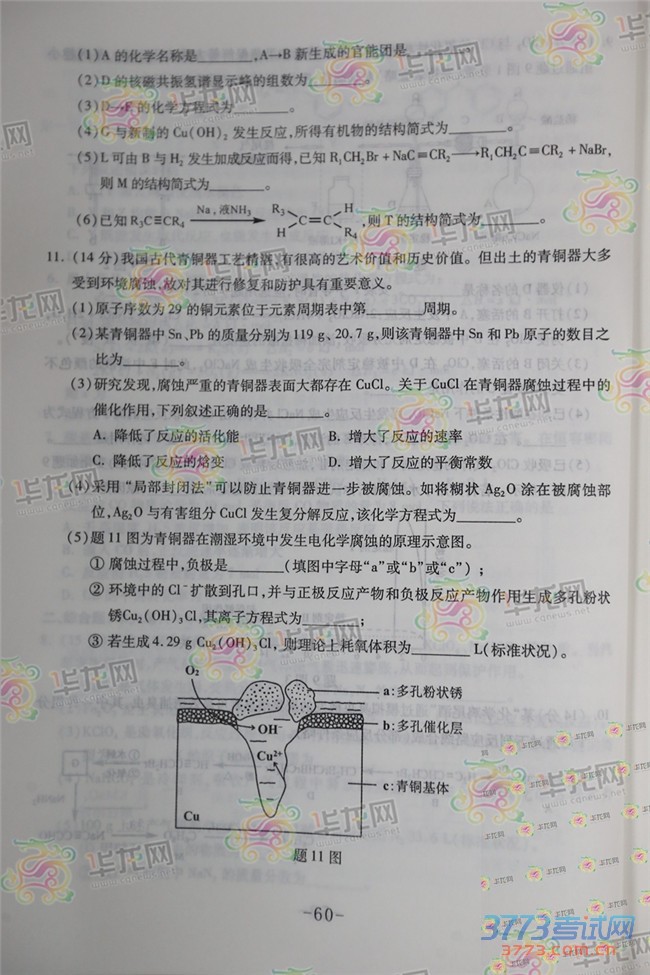 (1)A 的化学名称是________,A→B 新生成的官能团是________。
(2)D 的核磁共振氢谱显示峰的组数为________。
(3)D→E 的化学方程式为________。
(4)G 与新制的 Cu(OH)₂ 发生反应,所得有机物的结构简式为________。
(5)L 可由 B 与 H₂ 发生加成反应而得,已知 R₁CH₂Br + NaC≡CR₂——→R₁CH₂C≡CR₂ + NaBr,
则 M 的结构简式为________。
(6)已知 R₃C≡CR₄ Na,液NH₃ R₃ H C=C H R₄ ,则 T 的结构简式为________。
11. (14 分)我国古代青铜器工艺精湛,有很高的艺术价值和历史价值。但出土的青铜器大多
受到环境腐蚀,故对其进行修复和防护具有重要意义。
(1)原子序数为 29 的铜元素位于元素周期表中第________周期。
(2)某青铜器中 Sn、Pb 的质量分别为 119 g、20.7 g,则该青铜器中 Sn 和 Pb 原子的数目之
比为________。
(3)研究发现,腐蚀严重的青铜器表面大都存在 CuCl。关于 CuCl 在青铜器腐蚀过程中的
催化作用,下列叙述正确的是________。
A. 降低了反应的活化能 B. 增大了反应的速率
C. 降低了反应的焓变 D. 增大了反应的平衡常数
(4)采用“局部封闭法”可以防止青铜器进一步被腐蚀。如将糊状 Ag₂O 涂在被腐蚀部
位,Ag₂O 与有害组分 CuCl 发生复分解反应,该化学方程式为________。
(5)题 11 图为青铜器在潮湿环境中发生电化学腐蚀的原理示意图。
① 腐蚀过程中,负极是________(填图中字母“a”或“b”或“c”);
② 环境中的 Cl⁻扩散到孔口,并与正极反应产物和负极反应产物作用生成多孔粉状
锈Cu₂(OH)₃Cl,其离子方程式为________;
③ 若生成 4.29 g Cu₂(OH)₃Cl,则理论上耗氧体积为________L(标准状况)。
O₂
a:多孔粉状锈
OH⁻
b:多孔催化层
Cu²⁺
c:青铜基体
Cu
题 11 图
-60-
华龙网
www.cqnews.net
3773考试网
3773.com.cn